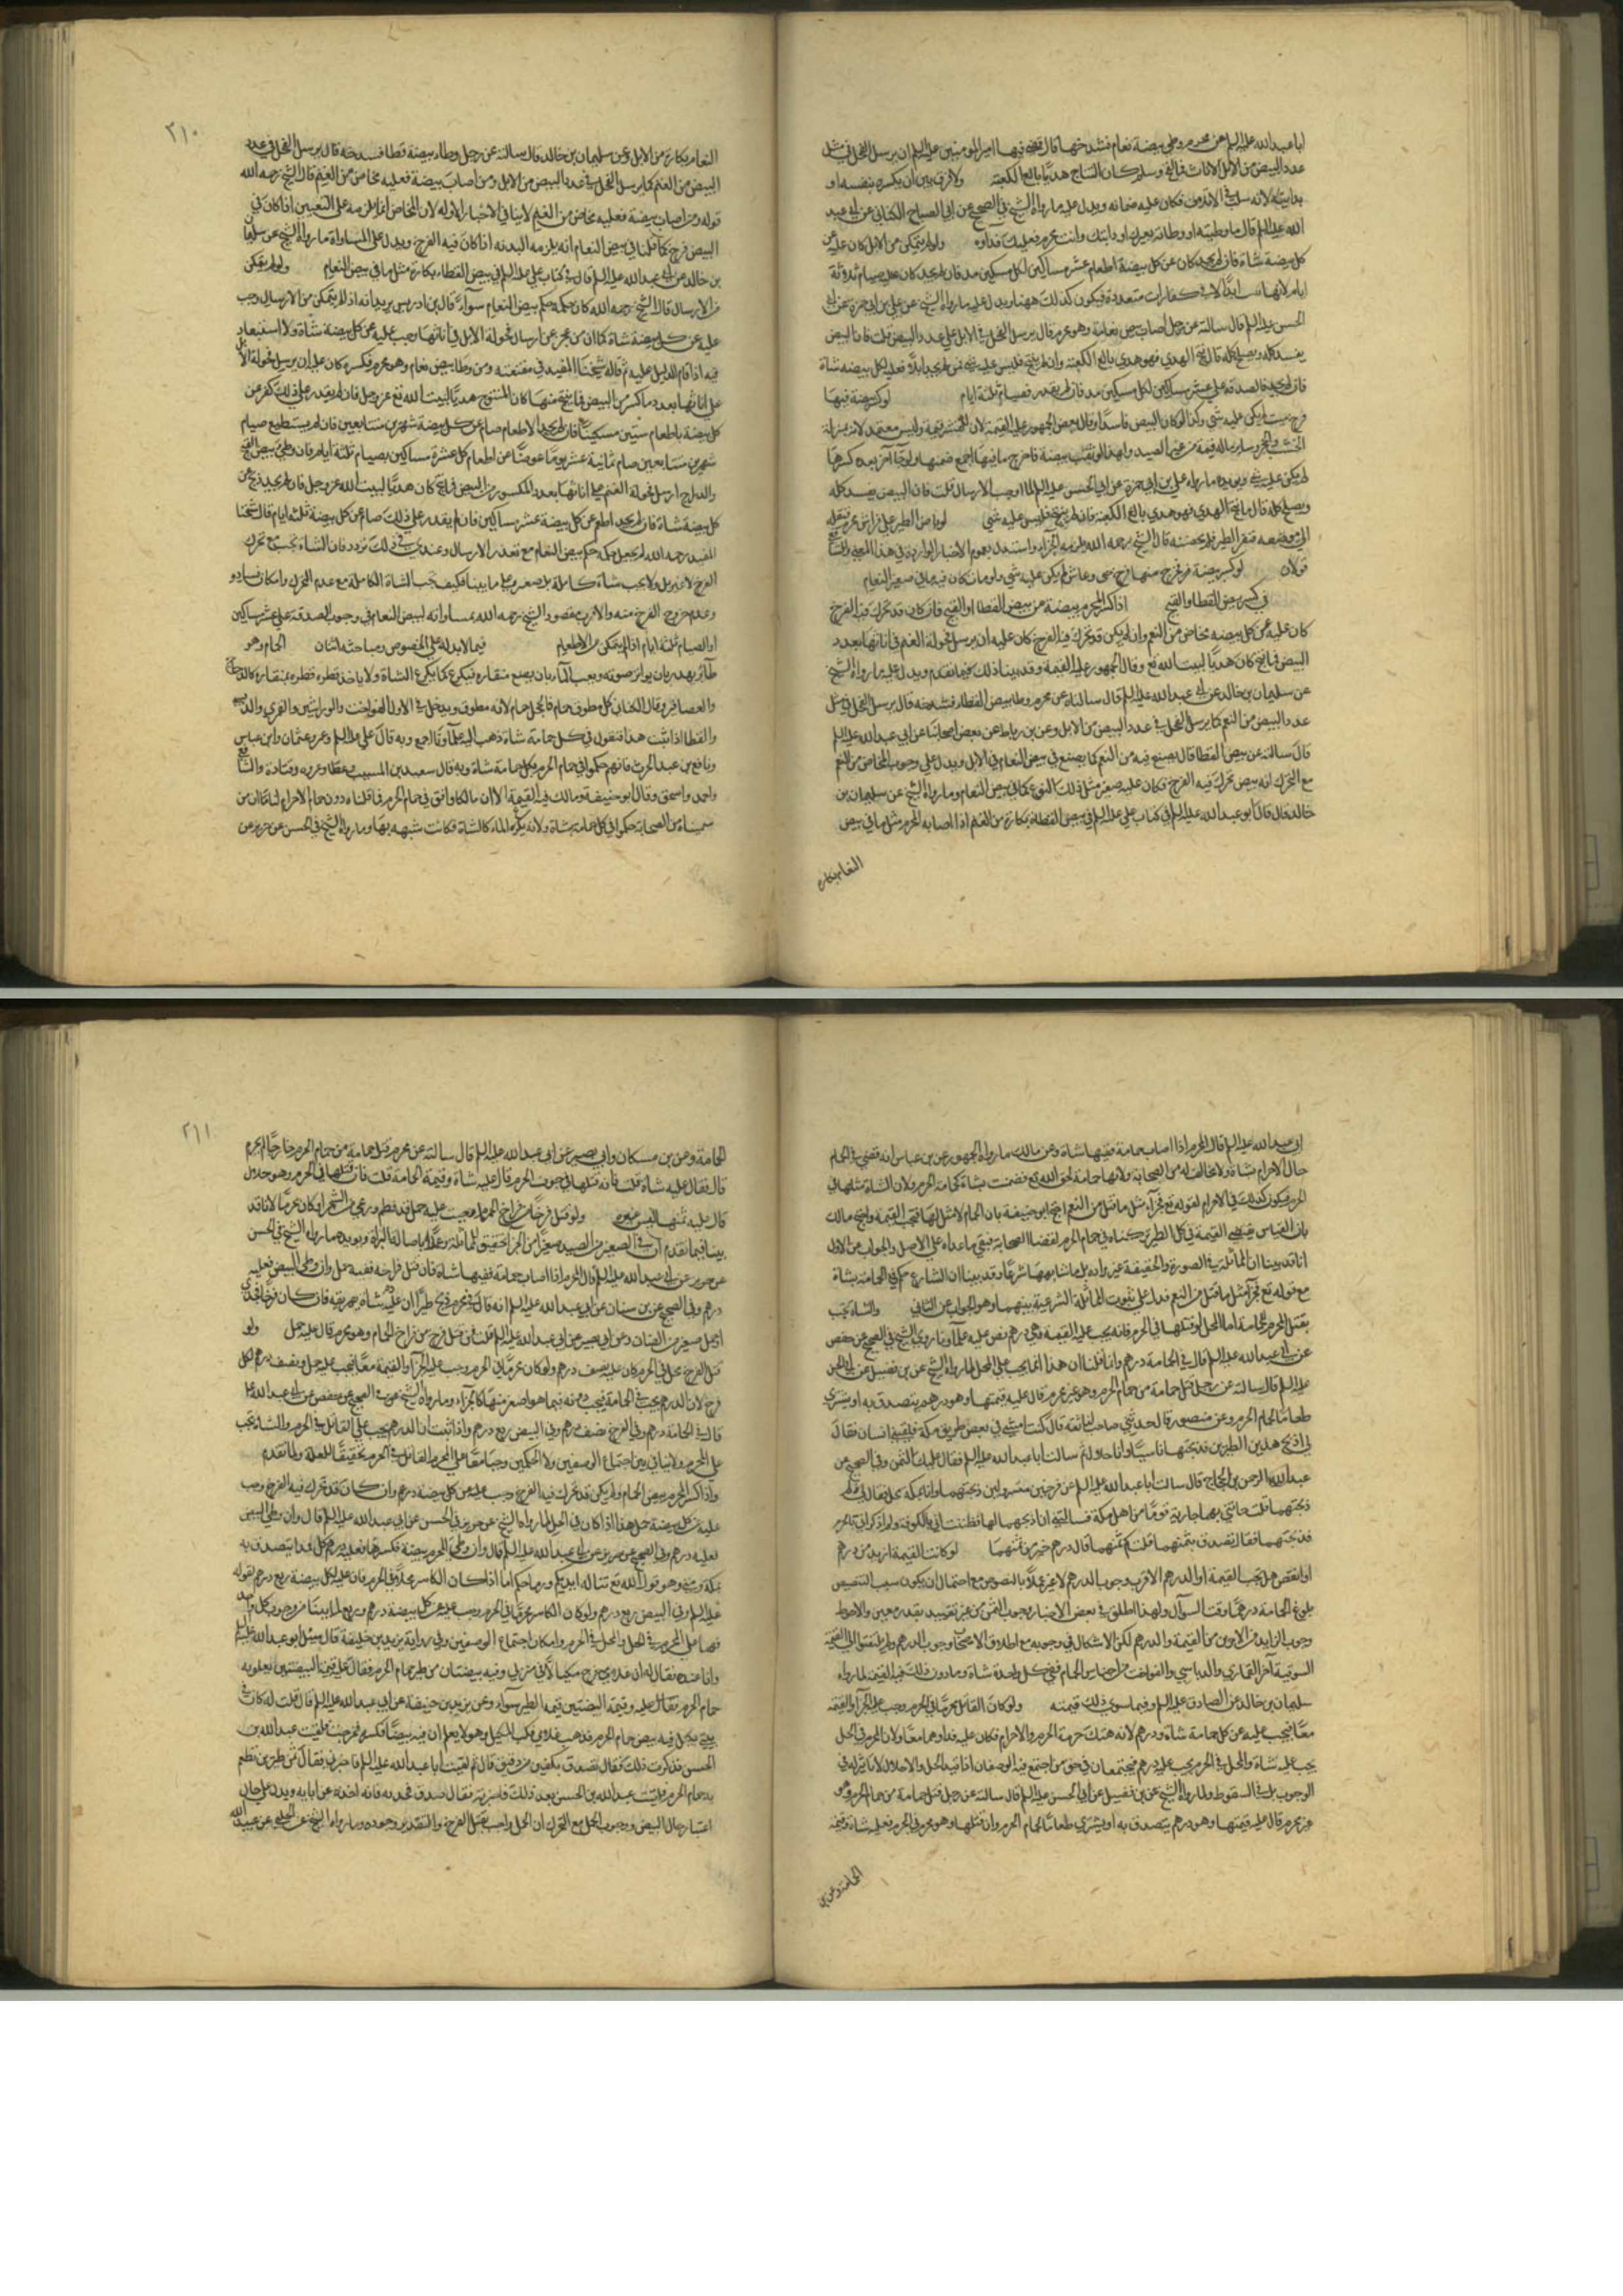 ابا عبد الله عليه السلم عن محرم وطئ بيضة نعام فشدخها قال قضى فيها امير المؤمنين عليه السلم ان يرسل الفحل في مثل
عدد البيض من الابل الاناث فما لقح وسلم كان النتاج هديا بالغ الكعبة ولا فرق بين ان يكسره بنفسه او
بدابته لانه سبب في الاتلاف فكان عليه ضمانه ويدل عليه ما رواه الشيخ في الصحيح عن ابي الصباح الكناني عن ابي عبد
الله عليه السلم قال ما وطيته او وطئه بعيرك او دابتك وانت محرم فعليك فداوه ولو لم يتمكن من الابل كان عليه عن
كل بيضة شاة فان لم يجد كان عن كل بيضة اطعام عشرة مساكين لكل مسكين مد فان لم يجد كان عليه صيام ثلاثة
ايام لانها في كفارات متعددة فيكون كذلك ههنا ويدل عليه ما رواه الشيخ عن علي بن ابي حمزة عن ابي
الحسن عليه السلم قال سالته عن رجل اصاب بيض نعامة وهو محرم قال يرسل الفحل في الابل على عدد البيض قلت فان البيض
يفسد كله ويصلح كله قال ما ينتج الهدي فهو هدي بالغ الكعبة وان لم ينتج فليس عليه شئ فمن لم يجد ابلا فعليه لكل بيضة شاة
فان لم يجد فالصدقة على عشرة مساكين لكل مسكين مد فان لم يقدر فصيام ثلثة ايام لو كسر بيضة فيها
فرخ ميت لم يكن عليه شئ وكذا لو كان البيض فاسدا وقال بعض الجمهور عليه القيمة لان للقشر قيمة وليس بمعتمد لانه بمنزلة
الخشب والحجر وساير ماله قيمة من غير الصيد ولهذا لو ثقب بيضة فاخرج ما فيها اجمع ضمنها ولو جا اخر بعده كسرها
لم يكن عليه شئ ويؤيده ما رواه علي بن ابي حمزة عن ابي الحسن عليه السلم لما اوجب الارسال قلت فان البيض يفسد كله
ويصلح كله قال ما ينتج الهدي فهو هدي بالغ الكعبة فان لم ينتج فليس عليه شئ لو باض الطير على فراش محرم فنقله
الى موضعه فنفر الطير فلم يحضنه قال الشيخ رحمه الله يلزمه الجزاء واستدل بعموم الاخبار الواردة في هذا المعنى وللشافعي
قولان لو كسر بيضة فخرج منها فرخ حي وعاش لم يكن عليه شئ ولو مات كان فيه ما في صغير النعام
في كسر بيض القطا والقبج اذا كسر المحرم بيضة من بيض القطا او القبج فان كان قد تحرك فيه الفرخ
كان عليه عن كل بيضة مخاض من النعم وان لم يكن قد تحرك فيه الفرخ كان عليه ان يرسل فحولة الغنم في اناثها بعدد
البيض فما نتج كان هديا لبيت الله تع وقال الجمهور عليه القيمة وقد بينا ذلك فيما تقدم ويدل عليه ما رواه الشيخ
عن سليمان بن خالد عن ابي عبد الله عليه السلم قال سالناه عن محرم وطئ بيض القطا فشدخه قال يرسل الفحل في مثل
عدد البيض من النعم كما يرسل الفحل في عدد البيض من الابل وعن بن رباط عن بعض اصحابنا عن ابي عبد الله عليه السلم
قال سالته عن بيض القطا قال يصنع فيه من النعم كما يصنع في بيض النعام في الابل ويدل على وجوب المخاض من النعم
مع التحرك انه بيض تحرك فيه الفرخ فكان عليه صغير مثل في ذلك النوع كما في بيض النعام وما رواه الشيخ عن سليمان بن
خالد قال قال ابو عبد الله عليه السلم في كتاب علي عليه السلم في بيض القطاة بكارة من الغنم اذا اصابه المحرم مثل ما في بيض
النعام بكارة
٢١٠
النعام بكارة من الابل وعن سليمان بن خالد قال سالته عن رجل وطاء بيضة قطا فشدخه قال يرسل الفحل في عدد
البيض من الغنم كما يرسل الفحل في عدد البيض من الابل ومن اصاب بيضة فعليه مخاض من الغنم قال الشيخ رحمه الله
قوله ومن اصاب بيضة فعليه مخاض من الغنم لا ينافي الاخبار الاولة لان المخاض انما يلزمه على التعيين اذا كان في
البيض فرخ كما قلنا في بيض النعام انه يلزمه البدنة اذا كان فيه الفرخ ويدل على المساواة ما رواه الشيخ عن سليمان
بن خالد عن ابي عبد الله عليه السلم قال في كتاب علي عليه السلم في بيض القطاء بكارة مثل ما في بيض النعام ولو لم يتمكن
من الارسال قال الشيخ رحمه الله كان حكمه حكم بيض النعام سوآء قال بن ادريس يريد انه اذا لم يتمكن من الارسال وجب
عليه عن كل بيضة شاة كما ان من عجز عن ارسال فحولة الابل في اناثها وجب عليه عن كل بيضة شاة ولا استبعاد
فيه اذا قام الدليل عليه ثم قال شيخنا المفيد في مقنعته ومن وطئ بيض نعام وهو محرم فكسره كان عليه ان يرسل فحولة الابل
على اناثها بعدد ما كسر من البيض فما نتج منها كان المنتوج هديا لبيت الله تع عز وجل فان لم يقدر على ذلك كفر عن
كل بيضة باطعام ستين مسكينا فان لم يجد الاطعام صام عن كل بيضة شهرين متتابعين فان لم يستطيع صيام
شهرين متتابعين صام ثمانية عشر يوما عوضا عن اطعام كل عشرة مساكين بصيام ثلثة ايام فان وطئ بيض القبج
والدراج ارسل فحولة الغنم على اناثها بعدد المكسور من البيض فما نتج كان هديا لبيت الله عز وجل فان لم يجد ذبح عن
كل بيضة شاة فان لم يجد اطعم عن كل بيضة عشرة مساكين فان لم يقدر على ذلك صام عن كل بيضة ثلثة ايام قال شيخنا
المفيد رحمه الله لم يجعل حكمه حكم بيض النعام مع تعذر الارسال وعندي في ذلك تردد فان الشاة تجب مع تحرك
الفرخ لا غير بل ولا يجب شاة كاملة بل صغير على ما بينا فكيف تجب الشاة الكاملة مع عدم التحرك وامكان فساده
وعدم خروج الفرخ منه والاقرب مقصود الشيخ رحمه الله بمساواته لبيض النعام في وجوب الصدقة على عشرة مساكين
او الصيام ثلثة ايام اذا لم يتمكن من الاطعام فيما لا بدل له على الخصوص ومباحثه اثنان الحمام وهو
طائر يهدر بان يواتر صوته ويعب الماء بان يضع منقاره فيكرع كما يكرع الشاة ولا ياخذ قطره قطره بمنقاره كالدجاج
والعصافير وقال الكسائي كل مطوق حمام فالحجل حمام لانه مطوق ويدخل في الاول الفواخت والوراشين والقمري والدبسي
والقطا اذا ثبت هذا فنقول في كل حمامة شاة ذهب اليه علماونا اجمع وبه قال علي عليه السلم وعمر وعثمان وابن عباس
ونافع بن عبد الحرث فانهم حكموا في حمام الحرم بكل حمامة شاة وبه قال سعيد بن المسيب وعطا وعروه وقتادة والشافعي
واحمد واسحق وقال ابو حنيفة ومالك فيه القيمة الا ان مالكا وافق في حمام الحرم فاقلناه دون حمام الاحرام لنا ان من
سميناه من الصحابة حكموا في كل حمامة بشاة ولانه يكرع الماء كالشاة فكانت شبهه بها وما رواه الشيخ في الحسن عن حريز عن
ابي عبد الله عليه السلم قال المحرم اذا اصاب حمامة ففيها شاة وعن مالك ما رواه الجمهور عن بن عباس انه قضى في الحمام
حال الاحرام بشاة ولا مخالف له من الصحابة ولانها حمامة لحق الله تع فضمنت بشاة كحمامة الحرم ولان الشاة مثلها في
الحرم فيكون كذلك في الاحرام لقوله تع فجزآء مثل ما قتل من النعم احتج ابو حنيفة بان الحمام لا مثل لها فتجب القيمة واحتج مالك
بان القياس يقتضي القيمة في كل الطير تركناه في حمام الحرم لقضا الصحابة فيبقى ما عداه على الاصل والجواب عن الاول
انا قد بينا ان المماثلة في الصورة والحقيقة غير مراده بل ما شابهها شرعا وقد بينا ان الشارع حكم في الحمامة بشاة
مع قوله تع فجزآء مثل ما قتل من النعم فدل على ثبوت المماثلة الشرعية بينهما وهو الجواب عن الثاني والشاة تجب
بقتل المحرم للحمامة اما المحل لو قتلها في الحرم فانه يجب عليه القيمة وهي درهم نص عليه علماونا روى الشيخ في الصحيح عن حفص
عن ابي عبد الله عليه السلم قال في الحمامة درهم وانما قلنا ان هذا انما يجب على المحل لما رواه الشيخ عن بن فضيل عن ابي الحسن
عليه السلم قال سالته عن رجل قتل حمامة من حمام الحرم وهو غير محرم قال عليه قيمتها وهو درهم يتصدق به او يشتري
طعاما لحمام الحرم وعن منصور قال حدثني صاحب لنا ثقة قال كنت امشي في بعض طريق مكة فلقيني انسان فقال
لي اذبح هذين الطيرين فذبحتهما ناسيا وانا حلال ثم سالت ابا عبد الله عليه السلم فقال عليك الثمن وفي الصحيح عن
عبد الرحمن بن الحجاج قال سالت ابا عبد الله عليه السلم عن فرخين مسرولين ذبحتهما وانا بمكة محل فقال لي لم
ذبحتهما قلت جائتني بهما جارية قوم من اهل مكة فسالتني ان اذبحهما لها فظننت اني بالكوفة ولم اذكر اني بالحرم
فذبحتهما فقال تصدق بثمنهما قلت كم ثمنهما قال درهم خير من ثمنهما لو كانت القيمة ازيد من درهم
او انقص هل يجب القيمة او الدرهم الاقرب وجوب الدرهم لا غير عملا بالنصوص مع احتمال ان يكون سبب التنصيص
بلوغ الحمامة درهما وقت السوآل ولهذا اطلق في بعض الاخبار وجوب الثمن من غير تقييد بقدر معين والاحوط
وجوب الزايد من الامرين من القيمة والدرهم لكن الاشكال في وجوبه مع اطلاق الاصحاب وجوب الدرهم ولم يلتفتوا الى القيمة
السوقية آخر القماري والدباسي والفواخت من اجناس الحمام ففي كل واحدة شاة وما دون ذلك فيه القيمة لما رواه
سليمان بن خالد عن الصادق عليه السلم وفيما سوى ذلك قيمته ولو كان القاتل محرما في الحرم وجب عليه الجزآء والقيمة
معا فيجب عليه عن كل حمامة شاة ودرهم لانه هتك حرمة الحرم والاحرام فكان عليه فداوهما معا ولان المحرم في الحل
يجب عليه شاة والمحل في الحرم يجب عليه درهم فيجتمعان في حق من اجتمع فيه الوصفان اذ تقييد الحل والاحلال لا تاثير له في
الوجوب بل في السقوط ولما رواه الشيخ عن بن فضيل عن ابي الحسن عليه السلم قال سالته عن رجل قتل حمامة من حمام الحرم وهو
غير محرم قال عليه قيمتها وهو درهم يتصدق به او يشتري طعاما لحمام الحرم وان قتلها وهو محرم في الحرم فعليه شاة وقيمة
الحمامة وعن بن
٢١١
الحمامة وعن بن مسكان وابي بصير عن ابي عبد الله عليه السلم قال سالته عن محرم قتل حمامة من حمام الحرم خارجا من الحرم
قال فقال عليه شاة قلت فانه قتلها في جوف الحرم قال عليه شاة وقيمة الحمامة قلت فان قتلها في الحرم وهو حلال
قال عليه ثمنها ليس غيره ولو قتل فرخا من فراخ الحمام وجب عليه حمل قد فطم ورعى من الشجر ان كان محرما لانا قد
بينا فيما تقدم ان في الصغير من الصيد صغيرا من الجزا تحقيق للمماثلة وعملا باصالة البراة ويويده ما رواه الشيخ في الحسن
عن حريز عن ابي عبد الله عليه السلم قال المحرم اذا اصاب حمامة ففيها شاة فان قتل فراخه ففيه حمل وان وطئ البيض فعليه
درهم وفي الصحيح عن بن سنان عن ابي عبد الله عليه السلم انه قال في محرم ذبح طيرا ان عليه دم شاة يهريقه فان كان فرخا فجدي
او حمل صغير من الضان وعن ابي بصير عن ابي عبد الله عليه السلم قلت فمن قتل فرخ من فراخ الحمام وهو محرم قال عليه حمل ولو
قتل الفرخ محل في الحرم كان عليه نصف درهم ولو كان محرما في الحرم وجب عليه الجزآء والقيمة معا فيجب عليه حمل ونصف درهم لكل
فرخ لان الدرهم يجب في الحمامة فيجب دونه فيما هو اصغر منها كالجزآء وما رواه الشيخ في الصحيح عن حفص عن ابي عبد الله عليه
قال في الحمامة درهم وفي الفرخ نصف درهم وفي البيض ربع درهم واذا ثبت ان الدرهم يجب على القاتل في الحرم والشاة تجب
على المحرم ولا تنافي بين اجتماع الوصفين ولا الحكمين وجبا معا على المحرم القاتل في الحرم تحقيقا للعلة ولما تقدم
واذا كسر المحرم بيض الحمام ولم يكن قد تحرك فيه الفرخ وجب عليه عن كل بيضة درهم وان كان قد تحرك فيه الفرخ وجب
عليه عن كل بيضة حمل هذا اذا كان في الحل لما رواه الشيخ عن حريز في الحسن عن ابي عبد الله عليه السلم قال وان وطئ البيض
فعليه درهم وفي الصحيح عن حريز عن ابي عبد الله عليه السلم قال وان وطئ المحرم بيضة فكسرها فعليه درهم كل هذا يتصدق به
بمكة ومنى وهو قول الله تع تناله ايديكم ورماحكم اما اذا كان الكاسر محلا في الحرم فان عليه لكل بيضة ربع درهم لقوله
عليه السلم وفي البيض ربع درهم ولو كان الكاسر محرما في الحرم وجب عليه عن كل بيضة درهم وربع لما بينا من وجوب كل واحد
فيهما على المحرم في الحل والمحل في الحرم وامكان اجتماع الوصفين وفي رواية يزيد بن خليفة قال سئل ابو عبد الله عليه السلم
وانا عنده فقال له ان غلامي طرح مكتلا في منزلي وفيه بيضتان من طير حمام الحرم فقال عليه قيمة البيضتين يعلف به
حمام الحرم فقال عليه وقيمة البيضتين قيمة الطير سوآء وعن بن يزيد بن خليفة عن ابي عبد الله عليه السلم قال قلت له كان في
بيتي مكتل فيه بيض حمام الحرم فذهب غلامي فكب المكتل وهو لا يعلم ان فيه بيضا فكسره فخرجت فلقيت عبد الله بن
الحسن فذكرت ذلك فقال تصدق بكفين من دقيق قال ثم لقيت ابا عبد الله عليه السلم فاخبرته فقال ثمن طيرين تطعم
به حمام الحرم فلقيت عبد الله بن الحسن بعد ذلك فاخبرته فقال صدق فخذ به فانه اخذه عن ابايه ويدل على
اعتبار حال البيض ووجوب الحمل مع التحرك ان الحمل واجب بقتل الفرخ والتقدير وجوده وما رواه الشيخ عن الحلبي عن عبيد الله